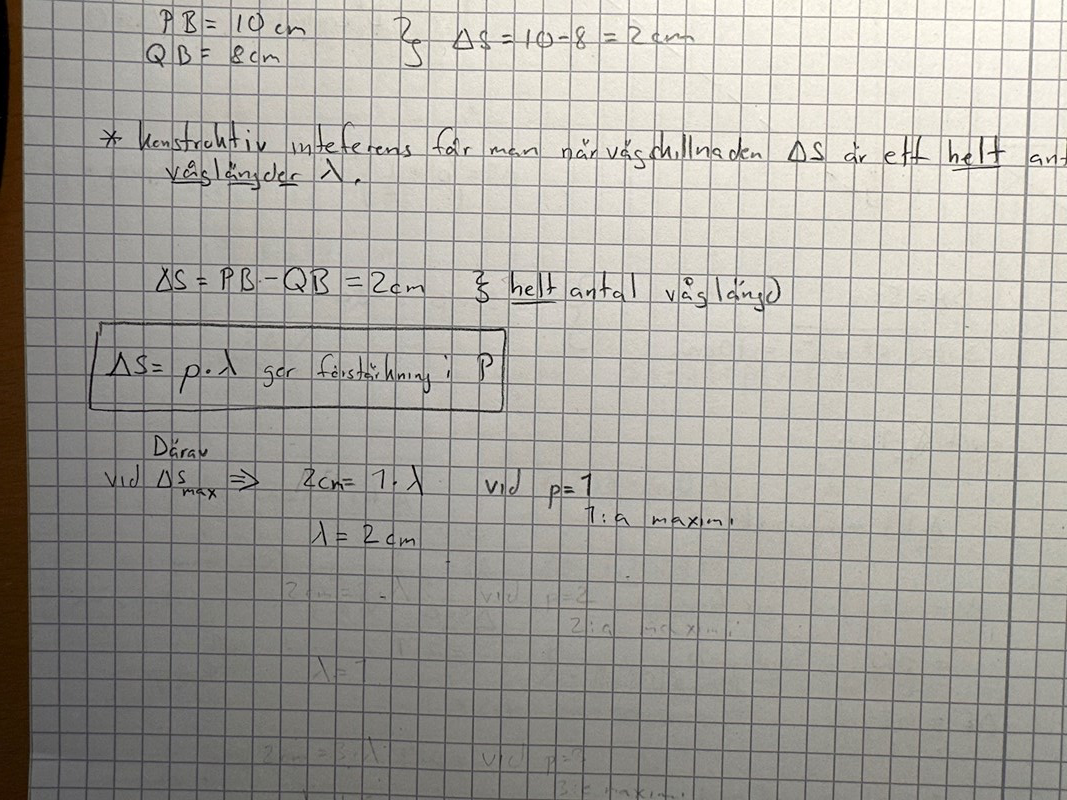 PB = 10 cm
QB = 8cm
ΔS = 10-8 = 2cm
* Konstruktiv inteferens får man när vägskillnaden ΔS är ett helt ant
våglängder λ.
ΔS = PB - QB = 2cm } helt antal våglängd
ΔS = p·λ ger förstärkning i P
Därav
vid ΔS max ⇒ 2cm = 1·λ vid p=1
1:a maximi
λ = 2cm
2cm = ·λ vid p=2
2:a maximi
λ = 1
2cm = 3·λ vid p=3
3:e maximi